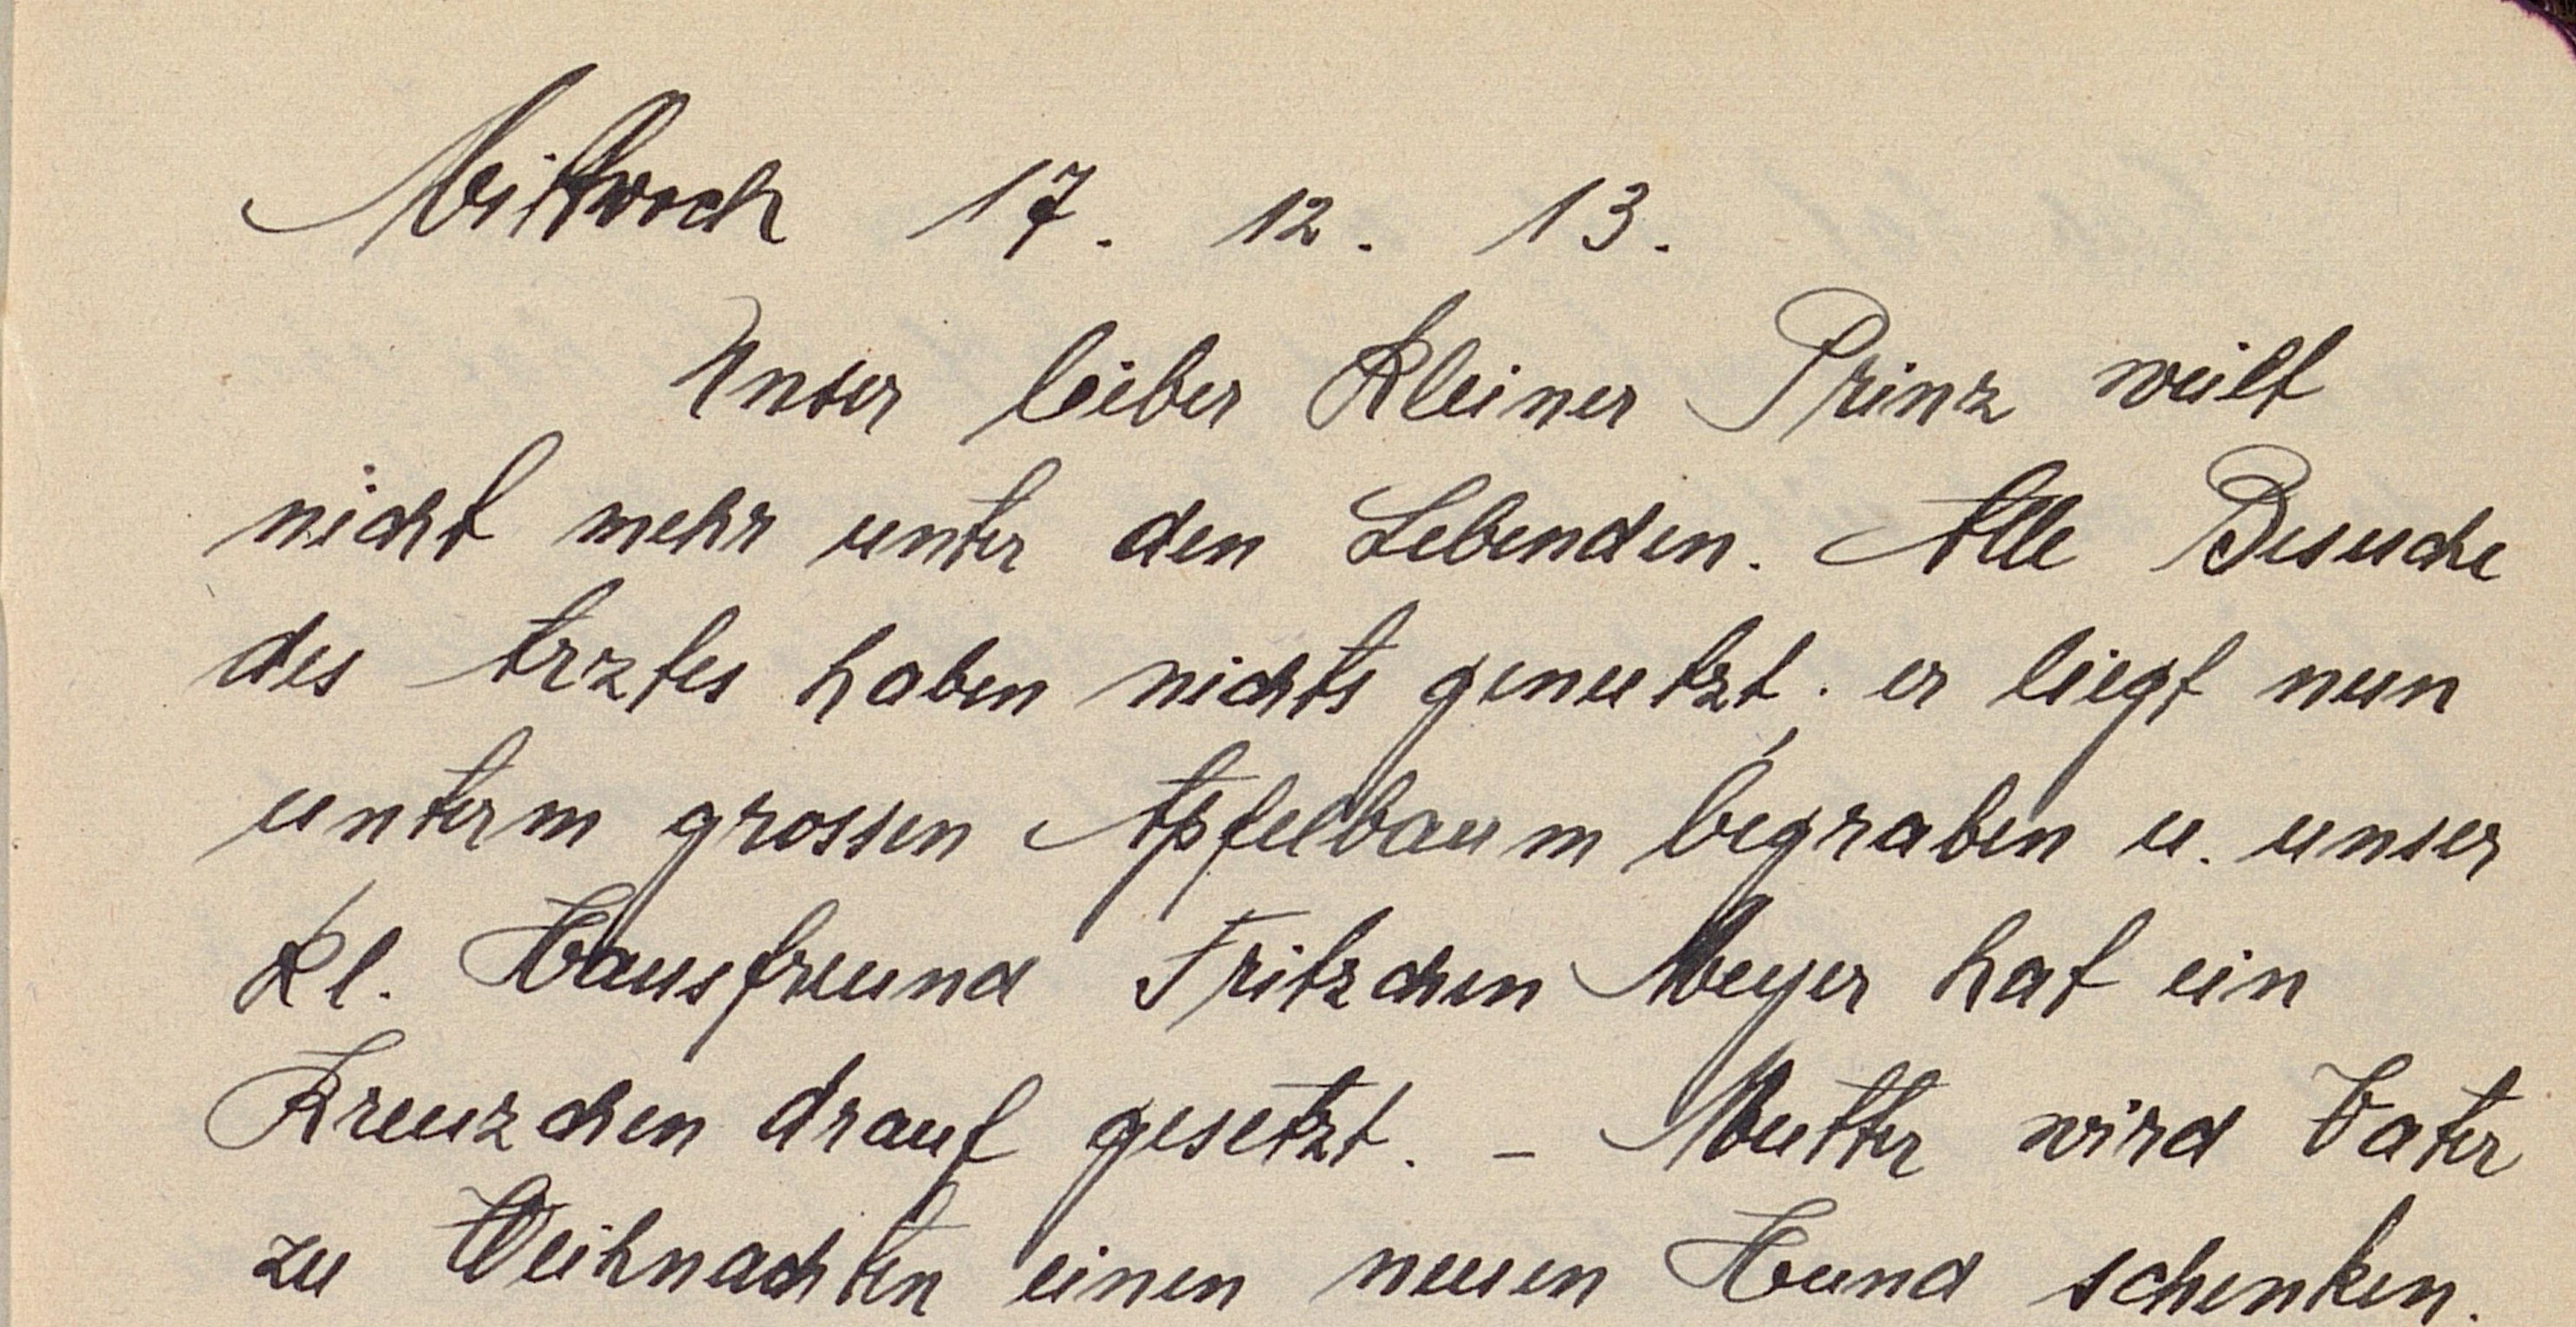 Mittwoch 17. 12. 13.
Unser lieber kleiner Prinz weilt
nicht mehr unter den Lebenden. Alle Besuche
des Arztes haben nichts genutzt; er liegt nun
unterm grossen Apfelbaum begraben u. unser
kl. Hausfreund Fritzchen Meyer hat ein
Kreuzchen drauf gesetzt. - Mutter wird Vater
zu Weihnachten einen neuen Hund schenken.